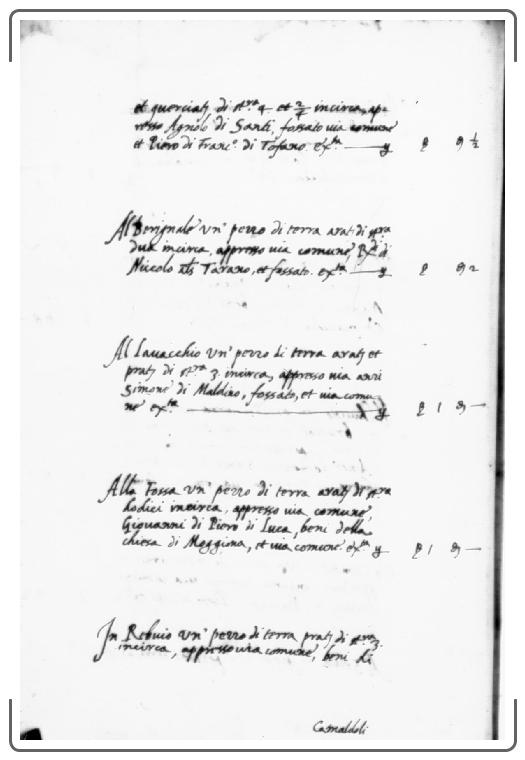 et querciatj di st.ra 4 et 2/4 incirca, ap-
resso Agnolo di Santi, fossato via comune
et Piero di Franc.o di Tofano ex.ta — y ₤ ₰ ½
Al Berignale un' pezzo di terra arati di st.ra
dua incirca, appresso via comune, di
Niccolo Tarano, et fossato. ex.ta — y ₤ ₰ 2
Al Lavacchio un' pezzo di terra aratj et
pratj di st.ra 3. incirca, appresso via anzi
Simone di Maldino, fossato, et via comu
ne ex.ta — y ₤ 1 ₰ —
Alla Fossa un' pezzo di terra aratj di st.ra
dodici incirca, appresso via comune,
Giovanni di Piero di Luca, beni della
chiesa di Moggina, et via comune ex.ta y ₤ 1 ₰ —
In Rebuio un' pezzo di terra pratj di st.ra 3.
incirca, appresso via comune, beni di
Camaldoli